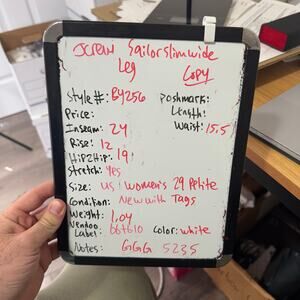 JCREW Sailorslimwide
Leg
Copy
Style #: BY256
Poshmark:
Price:
Length:
Inseam: 24
Waist: 15.5
Rise: 12
HiP2HiP: 19
Stretch: Yes
Size: US Women's 29 Petite
Condition: New with Tags
Weight: 1.04
Vendoo
Label: 66t610 Color: white
Notes: GGG 5235